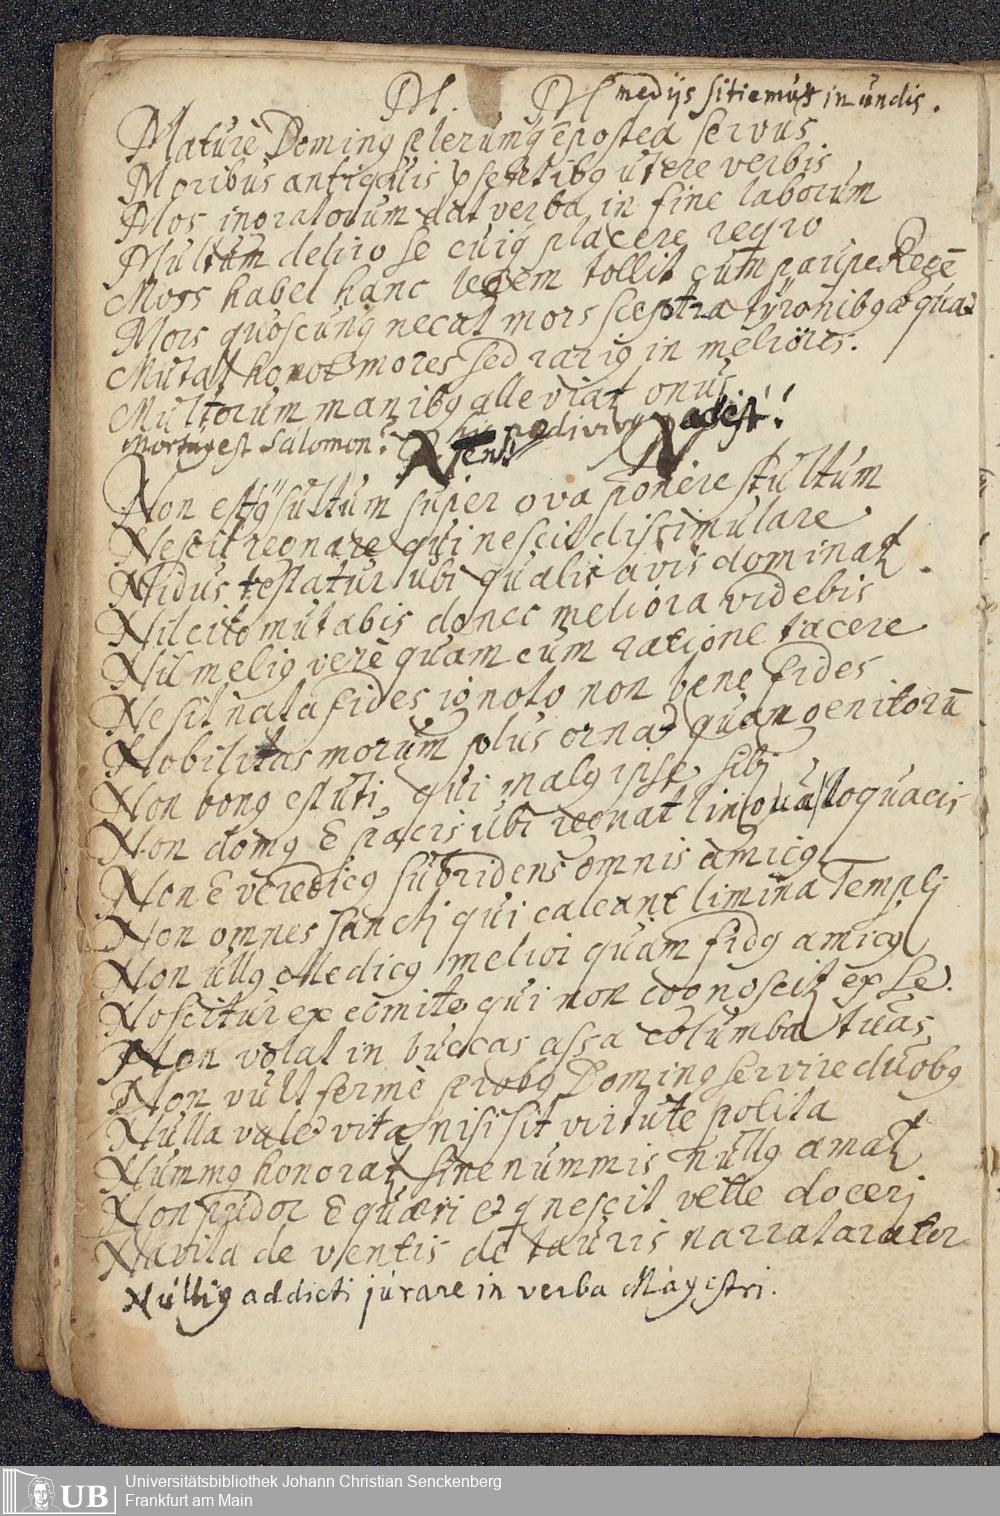 M. M medijs sitiemus in undis.
Maturè Doming plerumq epostea servus
Moribus antiquis psentibg utere verbis
Mos inoratorum dat verba in fine laborum
Multum deliro se cuig placere
Mors habet hanc legem tollit cum paupe Regē
Mors quoscunq necat mors sceptra æquat
Mutat honos mores sed rarig in meliores.
Multorum manibg alleviat onus
Mortug est Salomon! redivivg adest!
N N
Non est gsultum super ova ponere stultum
Nescit regnare qui nescit dissimulare
Nidus testatur ubi qualis avis dominat.
Nil cito mutabis donec meliora videbis
Nil melig verè quam cum ratione tacere
Ne sit nata fides ignoto non bene fides
Nobilitas morum plus ornat quam genitorū
Non bong est uti qui malg ipse sibi
Non domg E pacis ubi regnat lingua loquacis
Non E veredicg subridens omnis amicg
Non omnes sancti qui calcant limina Templi
Non ullg Medicg melior quam fidg amicg
Noscitur ex comite qui non cognoscit ex se.
Non volat in buccas assa columba tuas
Non vult fermè probg Doming servire duobg
Nulla valet vita nisi sit virtute polita
Nummg honorat sine nummis nullg amat
Non pudor E quæri et q nescit velle doceri
Navita de ventis de tauris narrat arator
Nullig addicti jurare in verba Magistri.
UB
Universitätsbibliothek Johann Christian Senckenberg
Frankfurt am Main